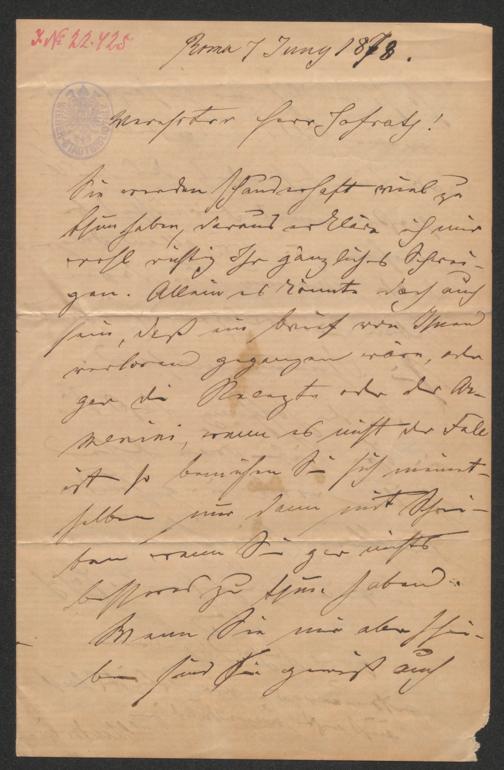 J. № 22.425
Roma 7 Juny 1878.
Verehrter Herr Hofrath!
Sie werden schauderhaft viel zu
thun haben, daraus erkläre ich mir
wohl richtig Ihr gänzliches Schwei-
gen. Allein es könnte doch auch
sein, daß ein Brief von Ihnen
verloren gegangen wäre, oder
gar die Rezepte oder der Ar-
menini, wenn es nicht der Fall
ist so bemühen Sie sich meinet-
halben nur dann mit Schrei-
ben wenn Sie gar nichts
besseres zu thun haben.
Wenn Sie mir aber schrei-
ben sind Sie gewiß auch